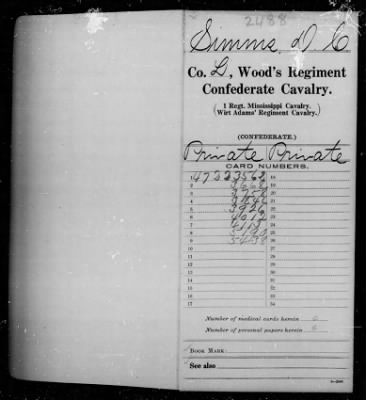 2488
Simms, D. C
Co. D, Wood's Regiment
Confederate Cavalry.
( 1 Regt. Mississippi Cavalry.
Wirt Adams' Regiment Cavalry. )
(CONFEDERATE.)
Private Private
CARD NUMBERS.
1 47323562 18
2 3668 19
3 3758 20
4 21
5 3926 22
6 4012 23
7 24
8 25
9 5438 26
10 27
11 28
12 29
13 30
14 31
15 32
16 33
17 34
Number of medical cards herein 0
Number of personal papers herein
BOOK MARK:
See also